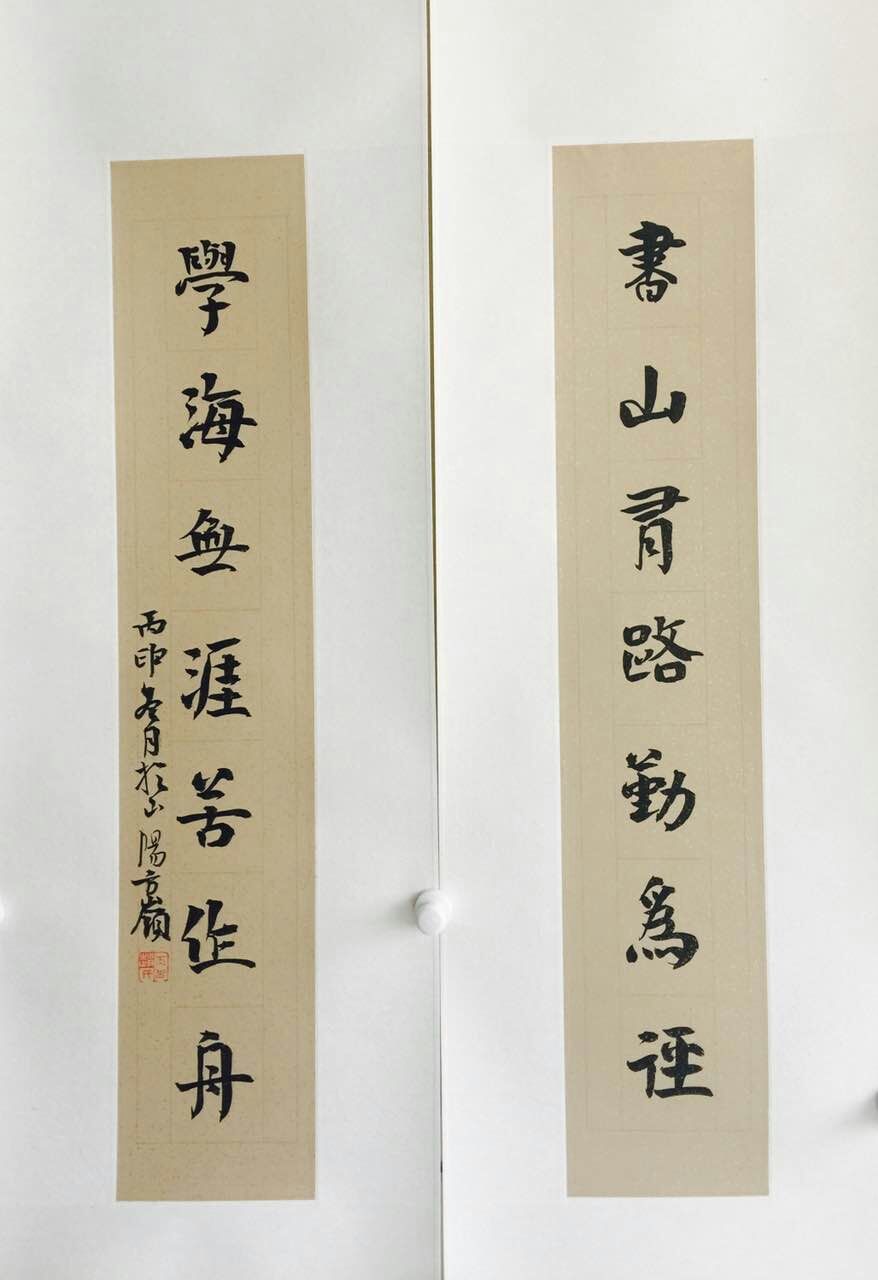 書山有路勤爲徑
學海無涯苦作舟
丙申冬月於山陽方嶺